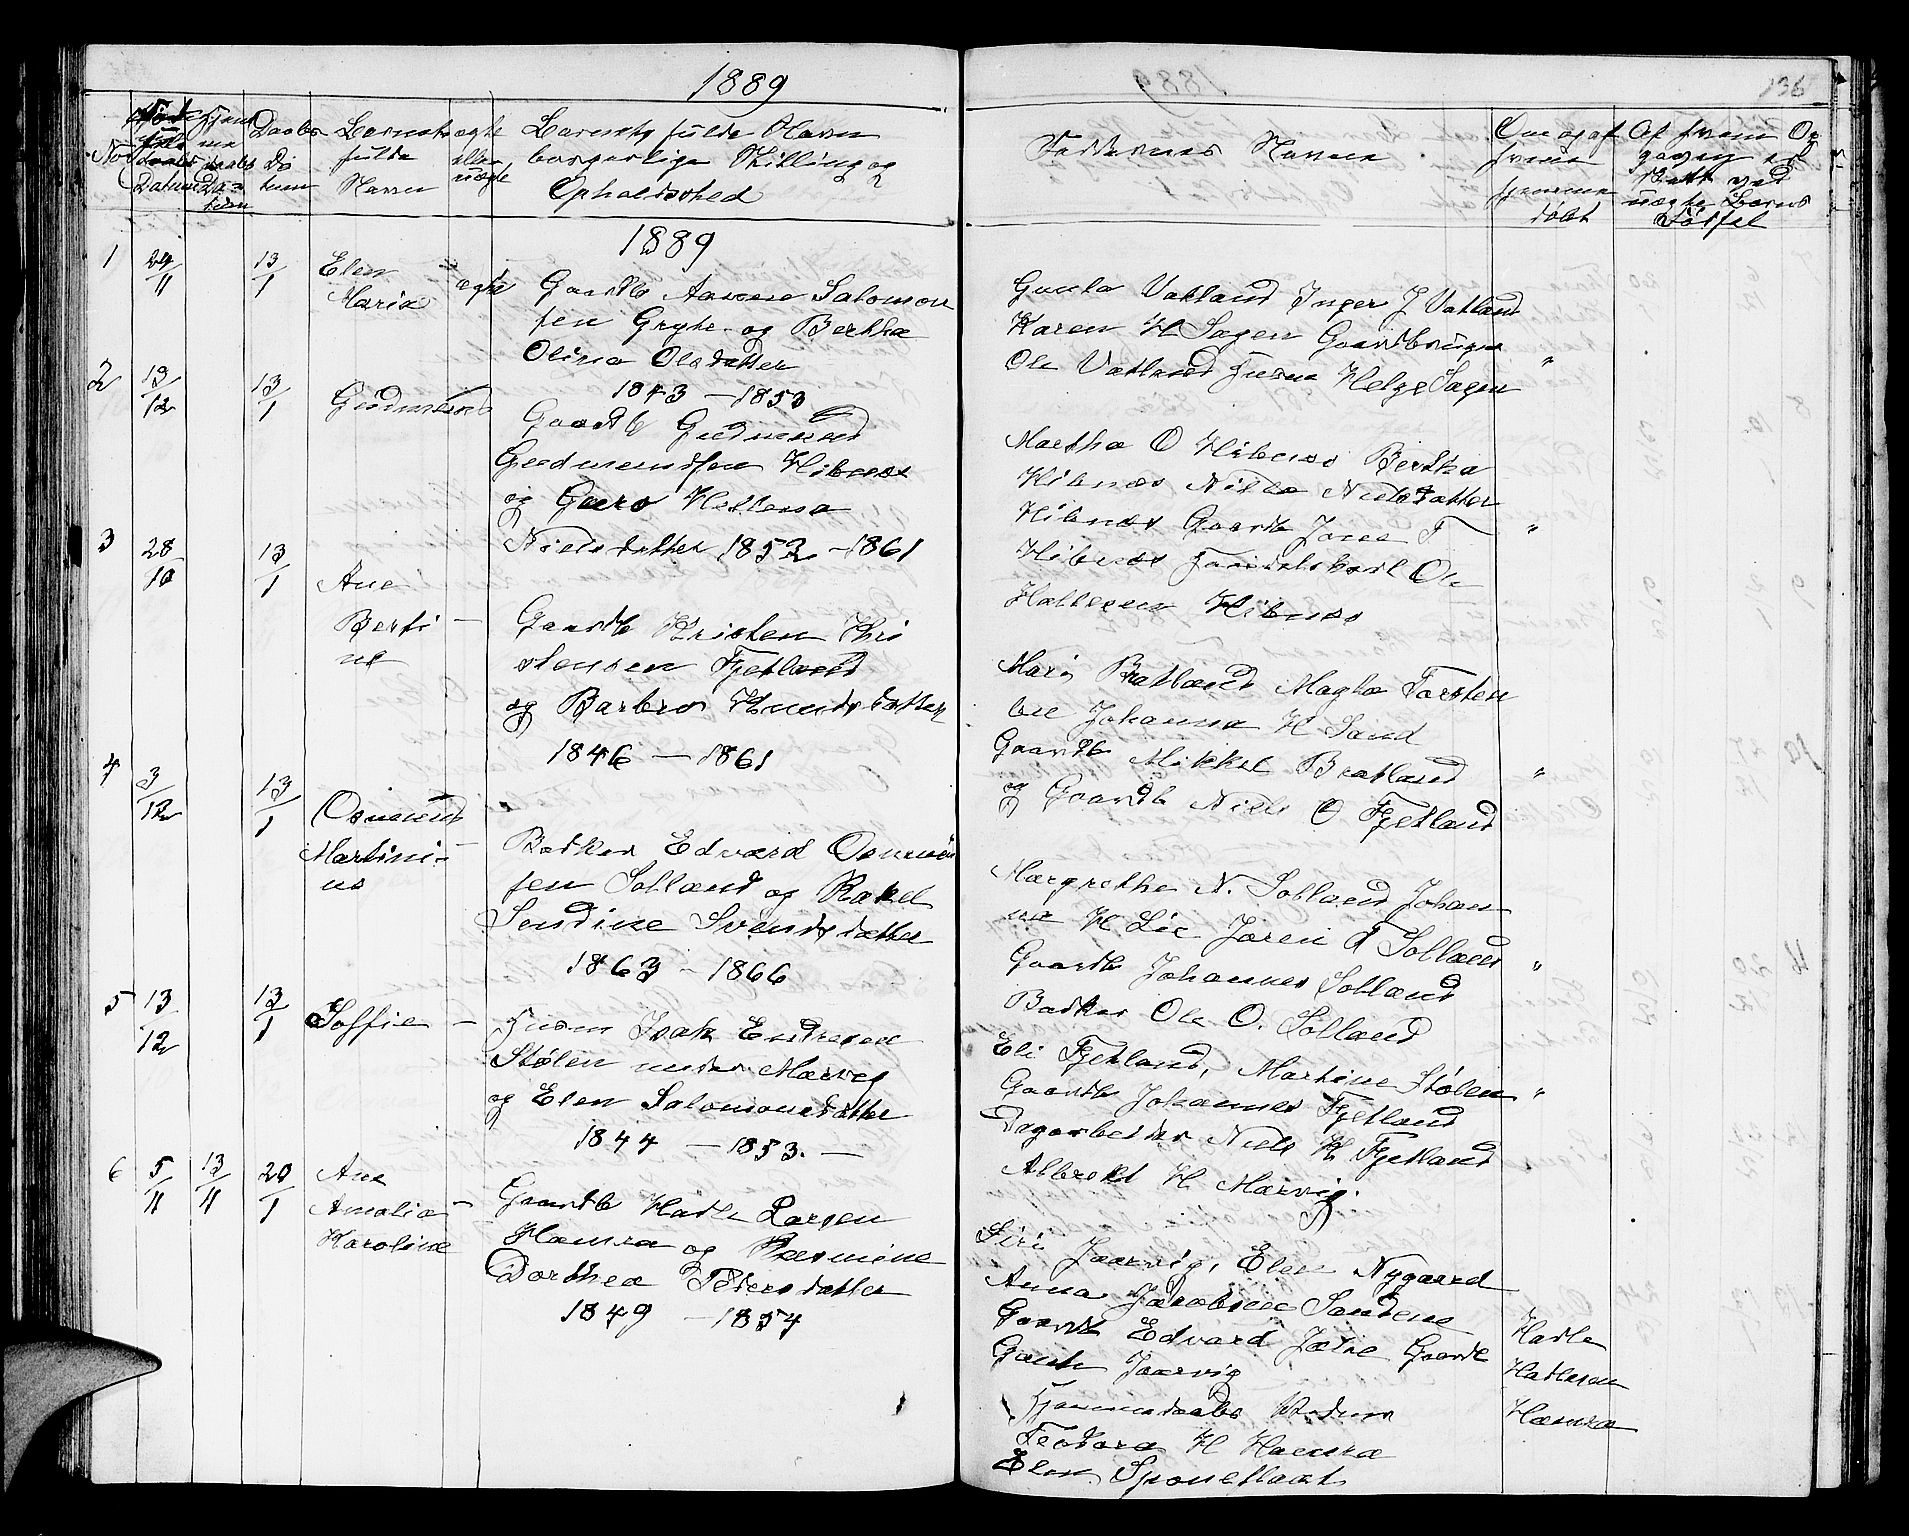 1889
136
No
Daabs
Barnets
fulde
Navn
ægte
eller
uægte
Barnets fulde Navn
borgerlige Stilling og
Opholdssted
Faddernes Navne
Om og af
hvem
hjemme
døbt
1889
1 29/11 13/1 Elen
Maria ægte
Gaardb Aamne Salomon
sen Gryte og Bertha
Olina Olsdatter
1843 – 1853
Gunla Vatland Inger J Vatland
Karen H Sagen Gaardbruger
Ole Vatland Husm Helge Sagen "
2 13/12 13/1 Gudmund
Gaardb Gudmund
Gudmundsen Hibnes
og Guro Hellena
Nielsdatter 1852 – 1861
Martha O Hibnes Bertha
Hibnes Nille Nielsdatter
Hibnes Gaardb Jone T
Hibnes Handelskarl Ole
Hallesen Hibnes "
3 28/10 13/1 Ane
Berti
ne –
Gaardb Kristen Khri
stensen Fjetland
og Barbro Knudsdatter
1846 – 1861
Mari Bratland Magta Torsten
bre Johanna H Sand
Gaardb Mikkel Bratland
og Gaardb Niels O Fjetland "
4 3/12 13/1 Osmund
Martini-
us –
Bødker Edvard Osmun
sen Solland og Rakel
Sendine Svendsdatter
1863 – 1866
Margrethe N. Solland Johan
na H Lie Jøren T Solland
Gaardb Johannes Solland
Bødker Ole O. Solland "
5 13/12 13/1 Soffie –
Husm Isak Endresen
Stølen under Marvig
og Elen Salomonsdatter
1844 – 1853. –
Eli Fjetland, Martine Stølen "
Gaardb Johannes Fjetland
Dagarbeider Niels K Fjetland
Albrekt H Marvig.
6 5/11 13/11 20/1 Ane
Amalia –
Karoline
Gaardb Hatle Larsen
Hamra og Rasmine
Dorthea Petersdatter
1849 – 1854
Siri Jaarvig, Elen Nygaard
Anna Jacobsen Sandene
Gaardb Edvard Jelse Gaardb
Gaute Jaarvig
Hjemmedaabs Vidner
Teodora H Hamra
Elen Sponeflaat
Hatle
Hatlesen
Hamra